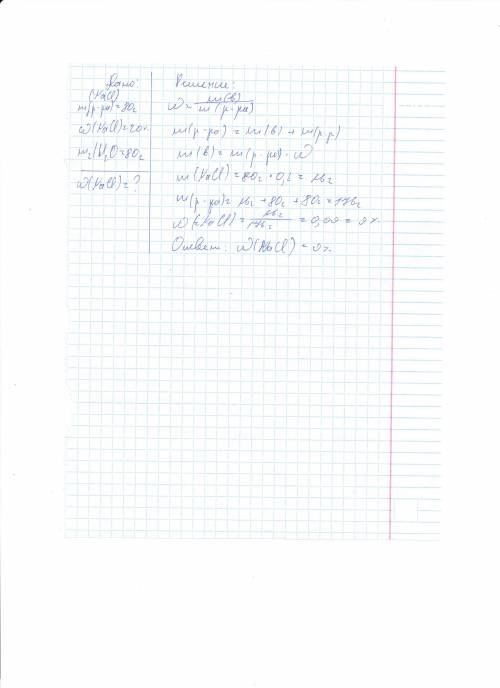 Дано:
(NaCl)
m(р-ра)=80г
ω(NaCl)=20%
m₂(H₂O)=80г
ω(NaCl)=?
Решение:
ω=m(в)/m(р-ра)
m(р-ра)=m(в)+m(р.р)
m(в)=m(р-ра)·ω
m(NaCl)=80г·0,2=16г
m(р-ра)=16г+80г+80г=176г
ω(NaCl)=16г/176г=0,09=9%
Ответ: ω(NaCl)=9%